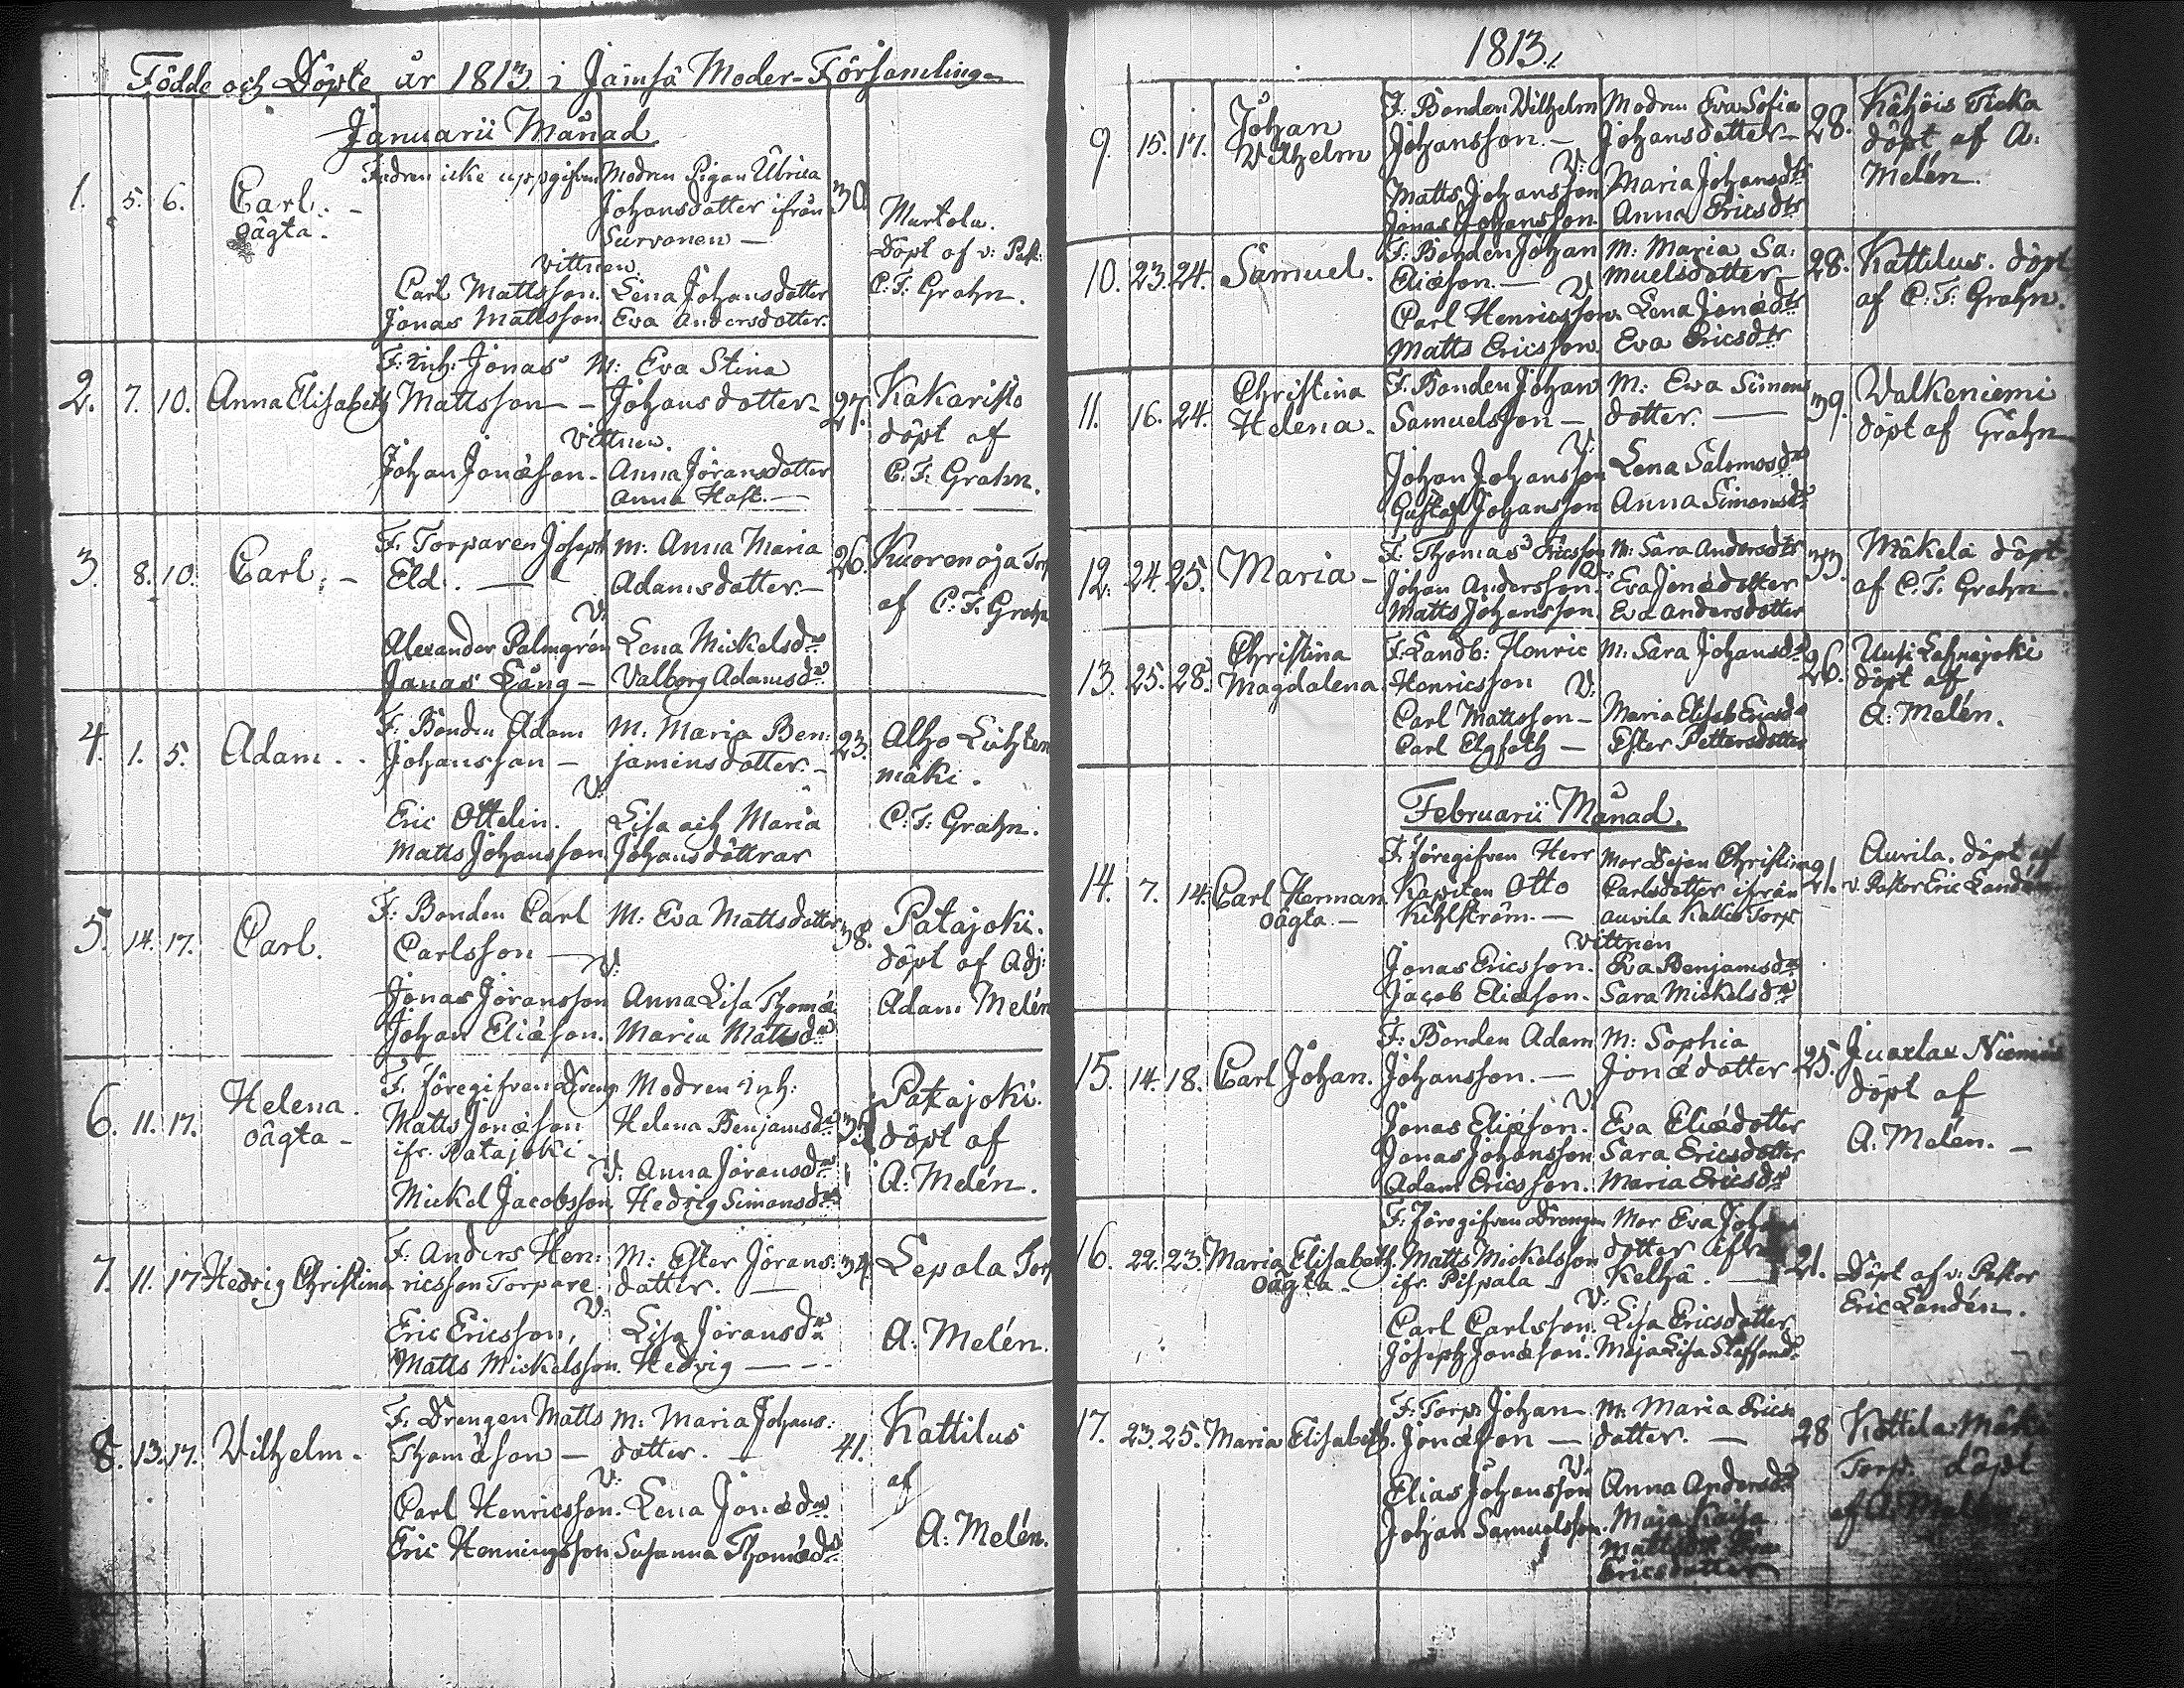 Födde och Döpte år 1813 i Jämsä Moder-Församling
Januarii Månad
1. 5. 6. Carl. oägta. Fadren icke uppgifven Modren Pigan Ulrica Johansdotter ifrån 30 Martola. Döpt af v: Past:
Survonen C: F: Grahn.
Vittnen
Carl Mattsson. Lena Johansdotter
Jonas Mattsson. Eva Andersdotter.
2. 7. 10. Anna Elisabeth F: Inh: Jonas Mattsson M: Eva Stina Johansdotter 27. Kakaristo döpt af C: F: Grahn.
Vittnen.
Johan Jonæson. Anna Jöransdotter
Anna Hast.
3. 8. 10. Carl. F. Torparen Joseph Eld. M: Anna Maria Adamsdotter 26. Kuorenoja Torp af C: F: Grahn
V:
Alexander Palmgrén Lena Mickelsdr
Jonas Lång Valborg Adamsdr
4. 1. 5. Adam. F: Bonden Adam Johansson M: Maria Benjaminsdotter. 23. Alho Lühtenmäki. C: F: Grahn.
V:
Eric Ottelin. Lisa och Maria
Matts Johansson Johansdöttrar
5. 14. 17. Carl. F: Bonden Carl Carlsson M: Eva Mattsdotter 38. Patajoki. döpt af Adj: Adam Melén
V:
Jonas Jöransson Anna Lisa Thomæ
Johan Eliæson. Maria Mattsdr
6. 11. 17. Helena. oägta F: föregifven Dreng Matts Jonæson ifr. Patajoki Modren Inh: Helena Benjamsdr Patajoki. döpt af A: Melén.
V: Anna Jöransdr
Mickel Jacobsson Hedvig Simonsdr
7. 11. 17 Hedvig Christina F: Anders Henricsson Torpare M: Ester Jöransdotter. 34. Lepola Torp A: Melén.
V:
Eric Ericsson, Lisa Jöransdr
Matts Mickelsson. Hedvig
8. 13. 17. Vilhelm. F: Drengen Matts Thomæson M: Maria Johansdotter. 41. Kattilus af A: Melén.
V:
Carl Henricsson. Lena Jonædr
Eric Henningsson Susanna Thomædr
1813.
9. 15. 17. Johan Wilhelm F: Bonden Vilhelm Johansson. Modren Eva Sofia Johansdotter 28. döpt af A: Melén.
V:
Matts Johansson Maria Johansdr
Jonas Johansson. Anna Ericsdr
10. 23. 24. Samuel. F: Bonden Johan Eliæson. M: Maria Samuelsdotter 28. Kattilus. döpt af C: F: Grahn.
V
Carl Henricsson. Lena Jonædr
Matts Ericsson. Eva Ericsdr
11. 16. 24. Christina Helena. F. Bonden Johan Samuelsson M: Eva Simonsdotter. 39. Walkeniemi döpt af Grahn
V:
Johan Johansson Lena Salomosdr
Gustaf Johansson Anna Simonsdr
12. 24. 25. Maria F. Thomas Ericsson M: Sara Andersdr 33. Mäkelä döpt af C. F. Grahn.
V:
Johan Andersson. Eva Jonædotter
Matts Johansson. Eva Andersdotter
13. 25. 28. Christina Magdalena F: Landb: Henric Henricsson M: Sara Johansdr 26. Uusi Lahnajoki döpt af A: Melén.
V:
Carl Mattsson Maria Elisab Ericsdr
Carl Elgfoth Ester Pettersdotter
Februarii Månad.
14. 7. 14. Carl Herman oägta F: föregifven Herr Kapiten Otto Kihlström. Mor Pijan Christina Carlsdotter ifrån Auvila Kallio Torp 21. Auvila. döpt af v. Pastor Eric Landén
Vittnen
Jonas Ericsson. Eva Benjamsdr
Jacob Eliæson. Sara Mickelsdr
15. 14. 18. Carl Johan. F: Bonden Adam Johansson. M: Sophia Jonædotter 25. Juoxlax döpt af A: Melén.
V:
Jonas Eliæson. Eva Eliædotter
Jonas Johansson Sara Ericsdotter
Adam Ericsson. Maria Ericsdr
16. 22. 23. Maria Elisabeth. oägta F: föregifven Drengen Matts Mickelsson ifr. Pispala Mor Eva Johansdotter ifrån Kelhä. 21. Döpt af v: Pastor Eric Landén.
V:
Carl Carlsson. Lisa Ericsdotter
Joseph Jonæson. Maja Lisa Staffansdr
17. 23. 25. Maria Elisabeth. F: Torp: Johan Jonæson M: Maria Ericsdotter. 28 Torp. döpt af A: Melén
V:
Elias Johansson Anna Andersdr
Johan Samuelsson. Maja Kaisa
Mattsdr Eva
Ericsdotter